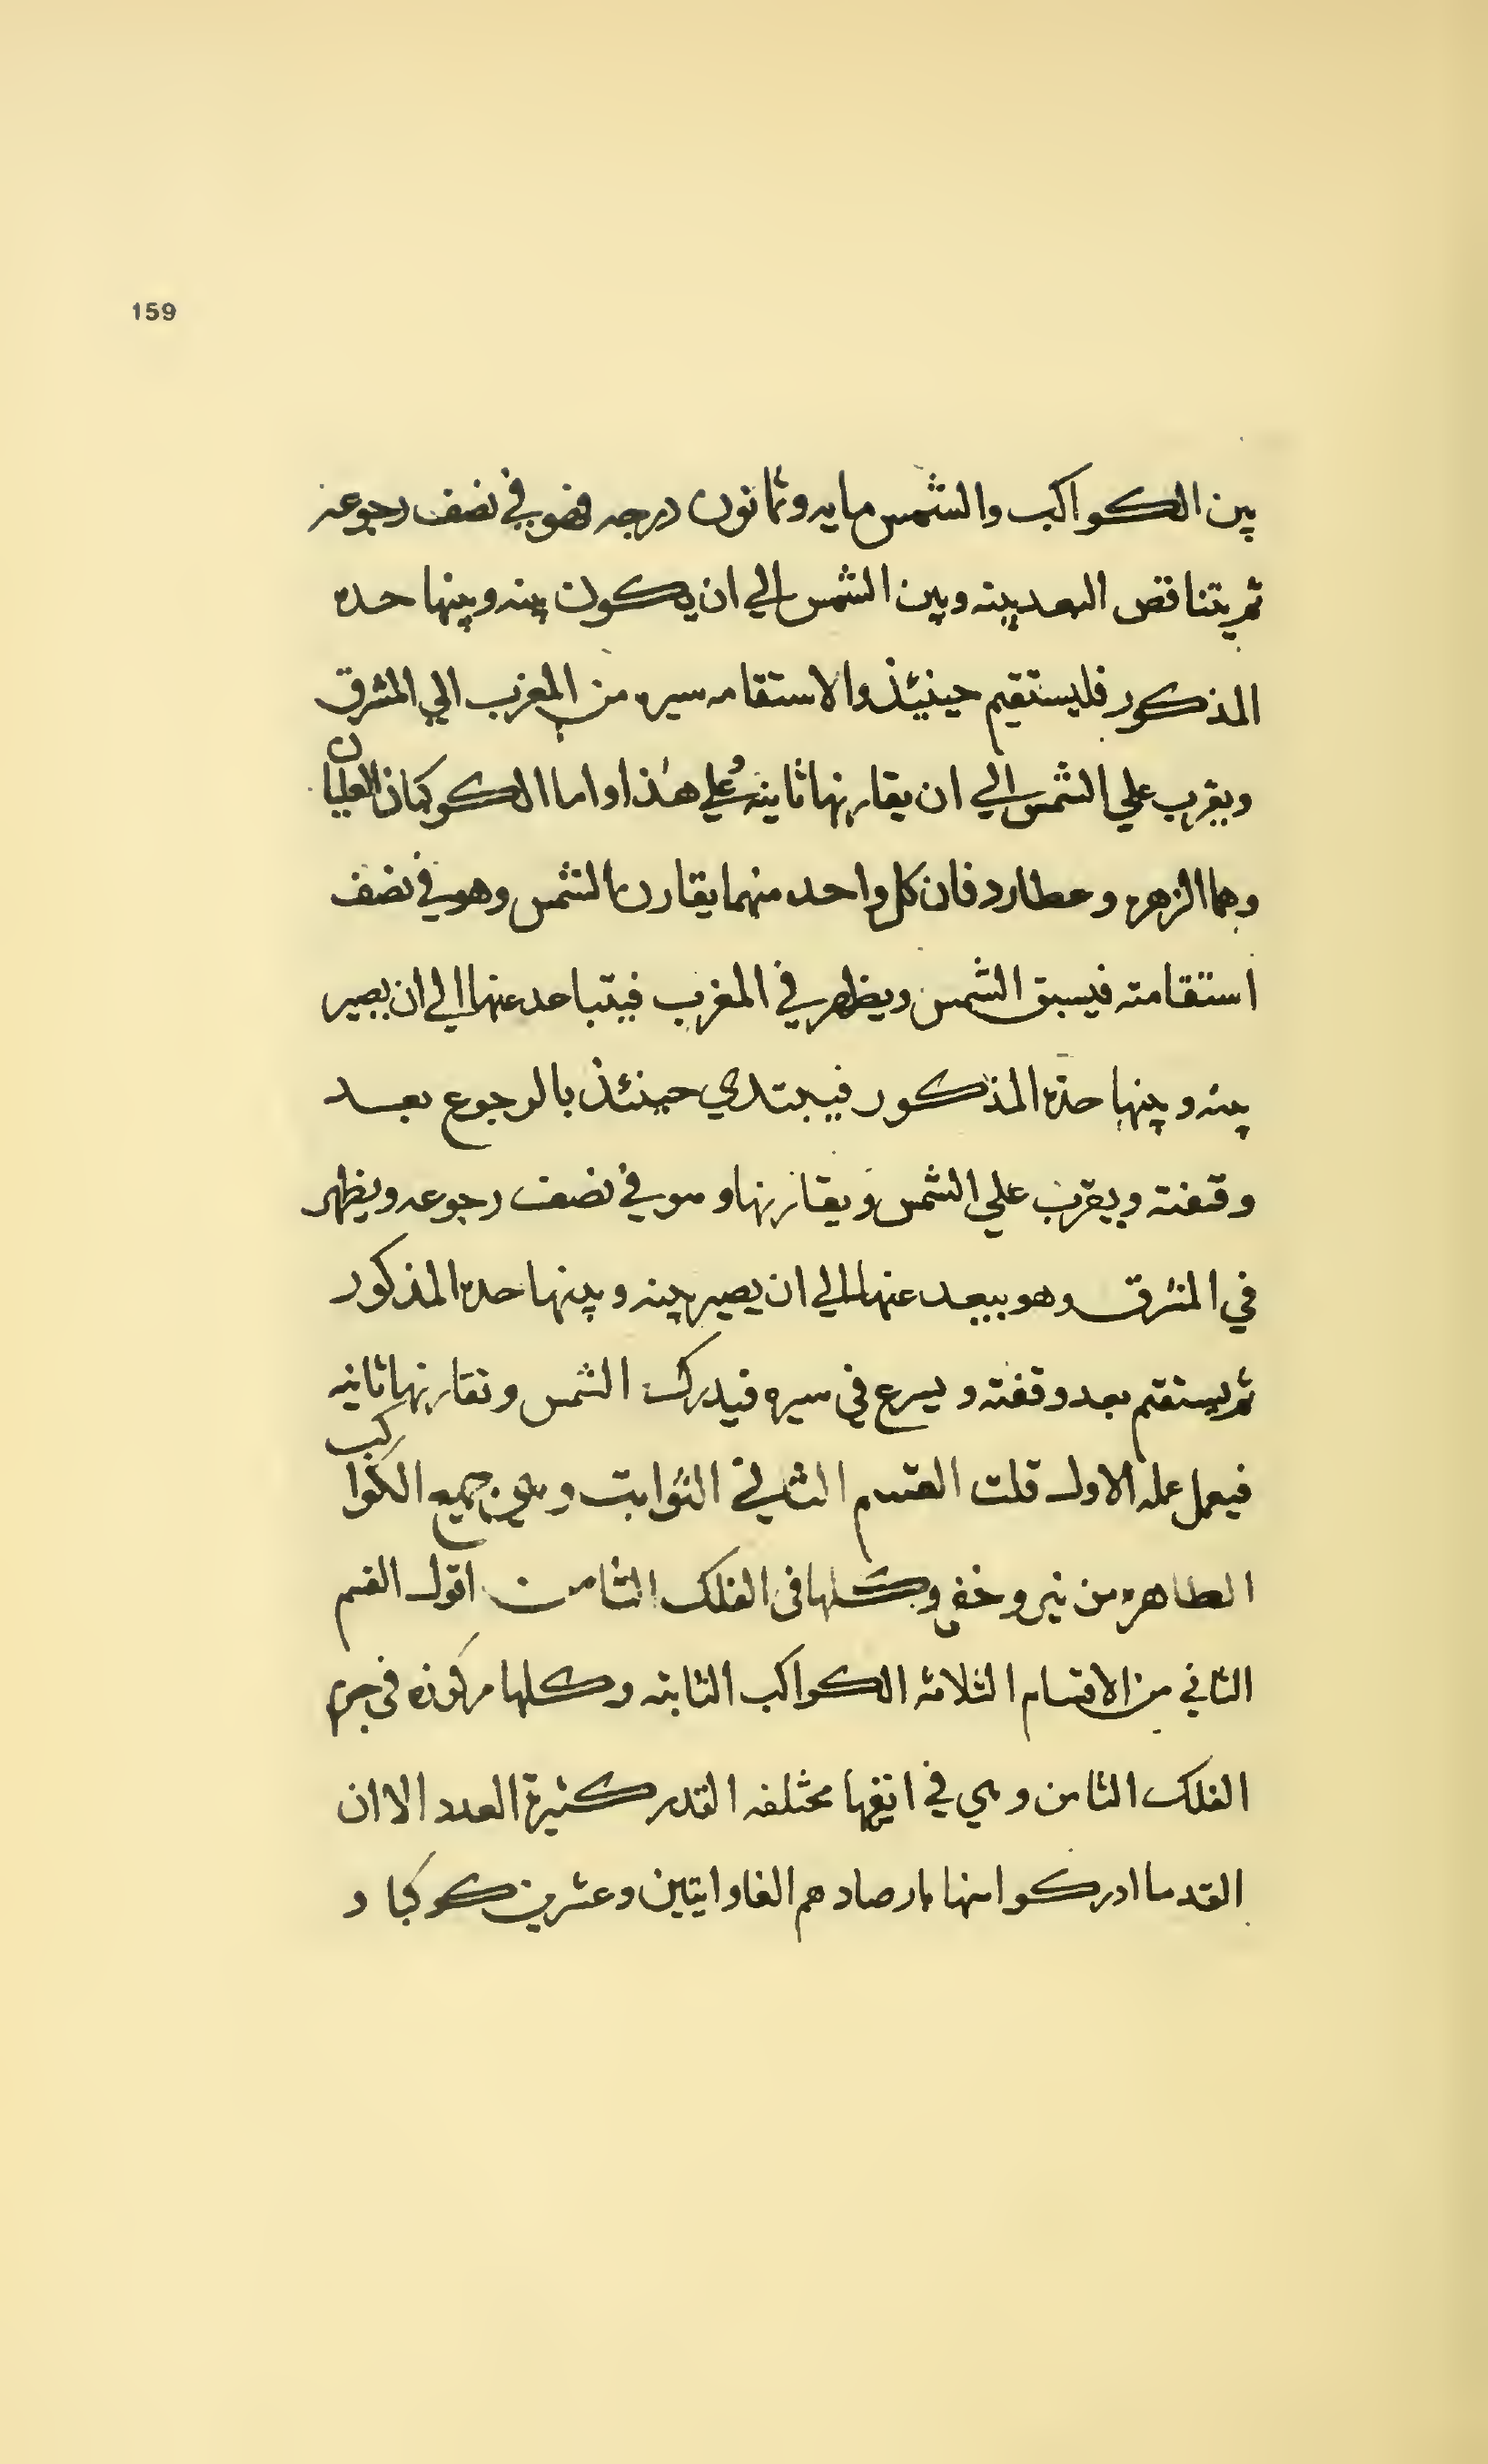 159
بين الكواكب والشمس مايه وثمانون درجه فهو في نصف رجوعه
ثم يتناقص البعد بينه وبين الشمس الي ان يكون بينه وبينها حده
المذكور فليستقيم حينيئذ والاستقامه سيره من المغرب الي المشرق
ويقرب علي الشمس الي ان يقارنها ثانيه وعلي هذا واما الكوكبان العليان
وهما الزهره وعطارد فان كل واحد منهما يقارن الشمس وهو في نصف
استقامته فيسبق الشمس ويظهر في المغرب فيتباعد عنها الي ان يصير
بينه وبينها حدّه المذكور فيبتدي حينئذ بالرجوع بعد
وقفته ويقرب علي الشمس ويقارنها وهو في نصف رجوعه ويظهر
في المشرق وهو يبعد عنها الي ان يصير بينه وبينها حده المذكور
ثم يستقم بعد وقفته ويسرع في سيره فيدرك الشمس وتقارنها ثانيه
فيعمل عمله الاول قلت القسم الثاني الثوابت وهي جميع الكواكب
الطاهره من نير وخفي وكلها في الفلك الثامن اقول القسم
الثاني من الاقسام الثلاثه الكواكب الثابته وكلها مركوزه في جرم
الفلك الثامن وهي في انفها مختلفه القدر كثيرة العدد الا ان
القدما ادركوا منها بارصادهم الفا واثنين وعشرين كوكبا و